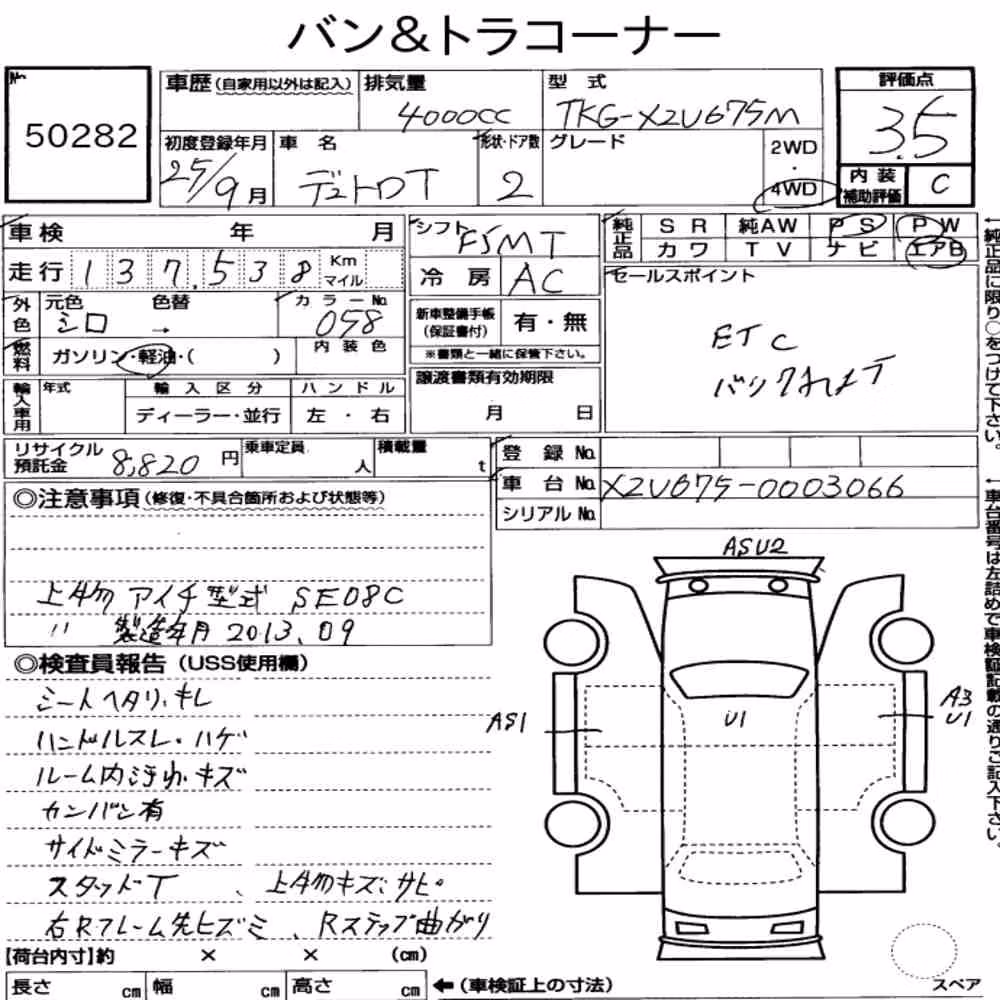 バン&トラコーナー
No.
50282
車歴(自家用以外は記入)
排気量
4000cc
型 式
TKG-XZU675M
評価点
3.5
初度登録年月
25/9月
車 名
デュトロT
形状・ドア数
2
グレード
2WD
・
4WD
内 装
補助評価
C
車検 年 月
走行 137,538 Km
マイル
シフト
F5MT
冷 房 AC
純正品
S R 純AW P S P W
カ ワ T V ナ ビ エアB
外色
元色 色替
シロ →
カラーNo.
058
燃料
ガソリン・軽油・( )
内 装 色
新車整備手帳
(保証書付)
有・無
※書類と一緒に保管下さい。
セールスポイント
ETC
バックカメラT
輸入車用
年式
輸 入 区 分
ディーラー・並行
ハ ン ド ル
左 ・ 右
譲渡書類有効期限
月 日
リサイクル
預託金
8,820円
乗車定員
人
積載量
t
登 録 No.
車 台 No. XZU675-0003066
シリアル No.
◎注意事項(修復・不具合箇所および状態等)
上物 アイチ 型式 SE08C
〃 製造年月 2013.09
◎検査員報告(USS使用欄)
シートヘタリ、キレ
ハンドルスレ・ハゲ
ルーム内汚れ・キズ
カンバン有
サイドミラーキズ
スタッドT、上物キズ、サビ。
右Rフレーム先ヒズミ、Rステップ曲がり
【荷台内寸】約 × × (cm)
長さ cm 幅 cm 高さ cm
←(車検証上の寸法)
ASU2
AS1
U1
A3
U1
スペア
←純正品に限り○をつけて下さい。
←車台番号は左詰めで車検証記載の通りご記入下さい。